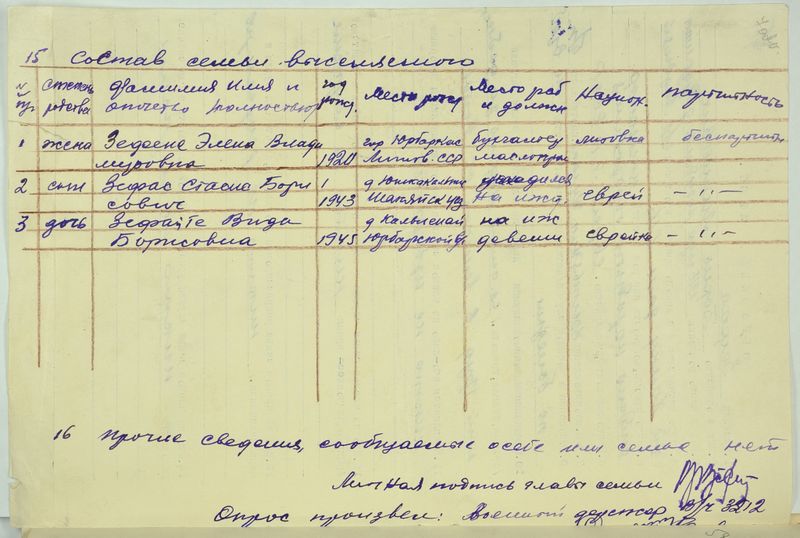 15 Состав семьи выселяемого
№ степень Фамилия Имя и год Место рожд Место раб Национ. партийность
родства отчество полностью рожд. и должн
1 жена Зефаене Элена Влади гор Юрбаркас бухгалтер литовка беспартийн
мировна 1920 Литов. ССР маслопром
2 сын Зефас Стасис Бори д находился
сович 1943 Шакяйск уезд На ижд еврей — " —
3 дочь Зефайте Вида д на иж
Борисовна 1945 Юрбаркской дивении еврейка — " —
16 прочие сведения, сообщаемые о себе или семье нет
Личная подпись главы семьи
Опрос произвел: Военный в/ч 3212